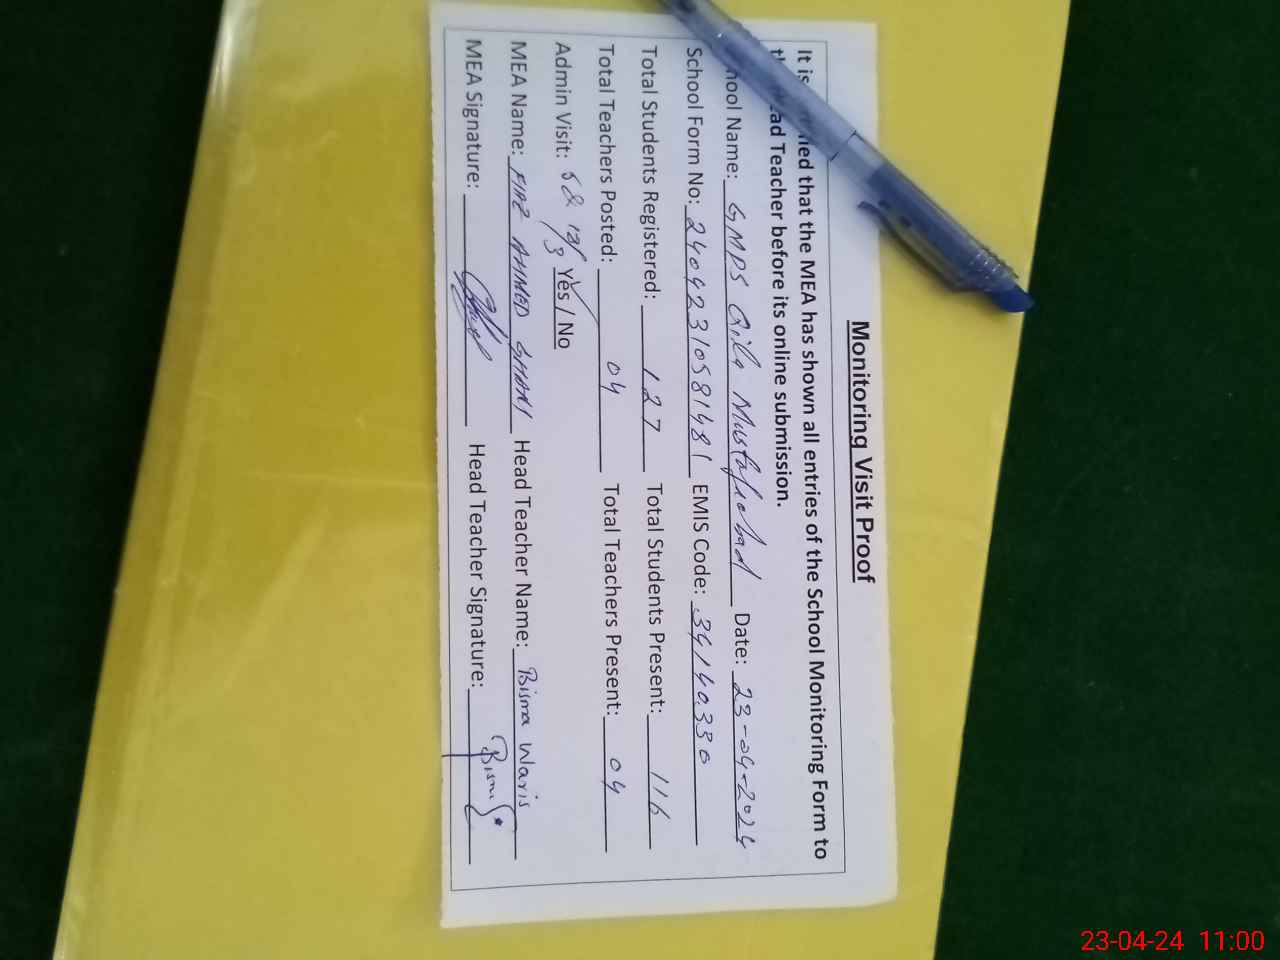 Monitoring Visit Proof
It is ied that the MEA has shown all entries of the School Monitoring Form to
ad Teacher before its online submission.
hool Name: GMPS Qila Mustafabad Date: 23-04-2024
School Form No: 24042310581481 EMIS Code: 34140330
Total Students Registered: 127 Total Students Present: 116
Total Teachers Posted: 04 Total Teachers Present: 04
Admin Visit: Yes / No
MEA Name: AHMED GHANI Head Teacher Name: Bisma Waris
MEA Signature: Head Teacher Signature:
23-04-24 11:00